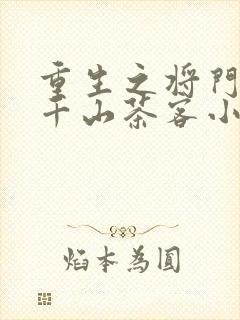 重生之将门
千山茶客小
焰本為圓